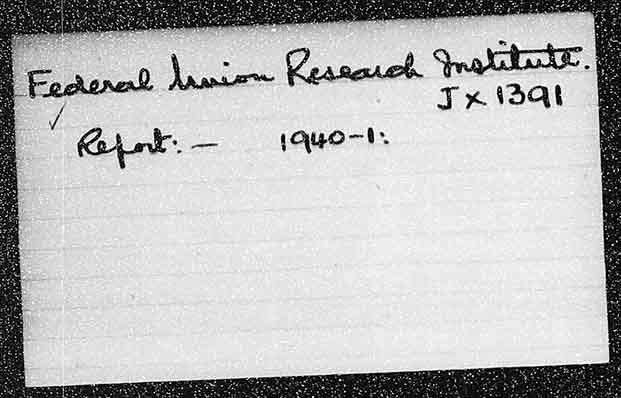 Federal Union Research Institute.
JX1391
✓
Report:— 1940-1: